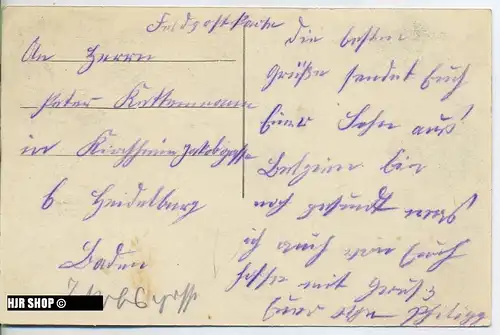 Feldpostkarte
An Herrn
Peter Kettemann
in Kirchheim Jakobgasse
6 Heidelburg
Baden
Die besten
Grüße sendet Euch
Euer Sohn aus
Belgien bin
noch gesundt was
ich auch von Euch
hoffe mit Gruß
Euer Sohn Philipp
HJR SHOP ©